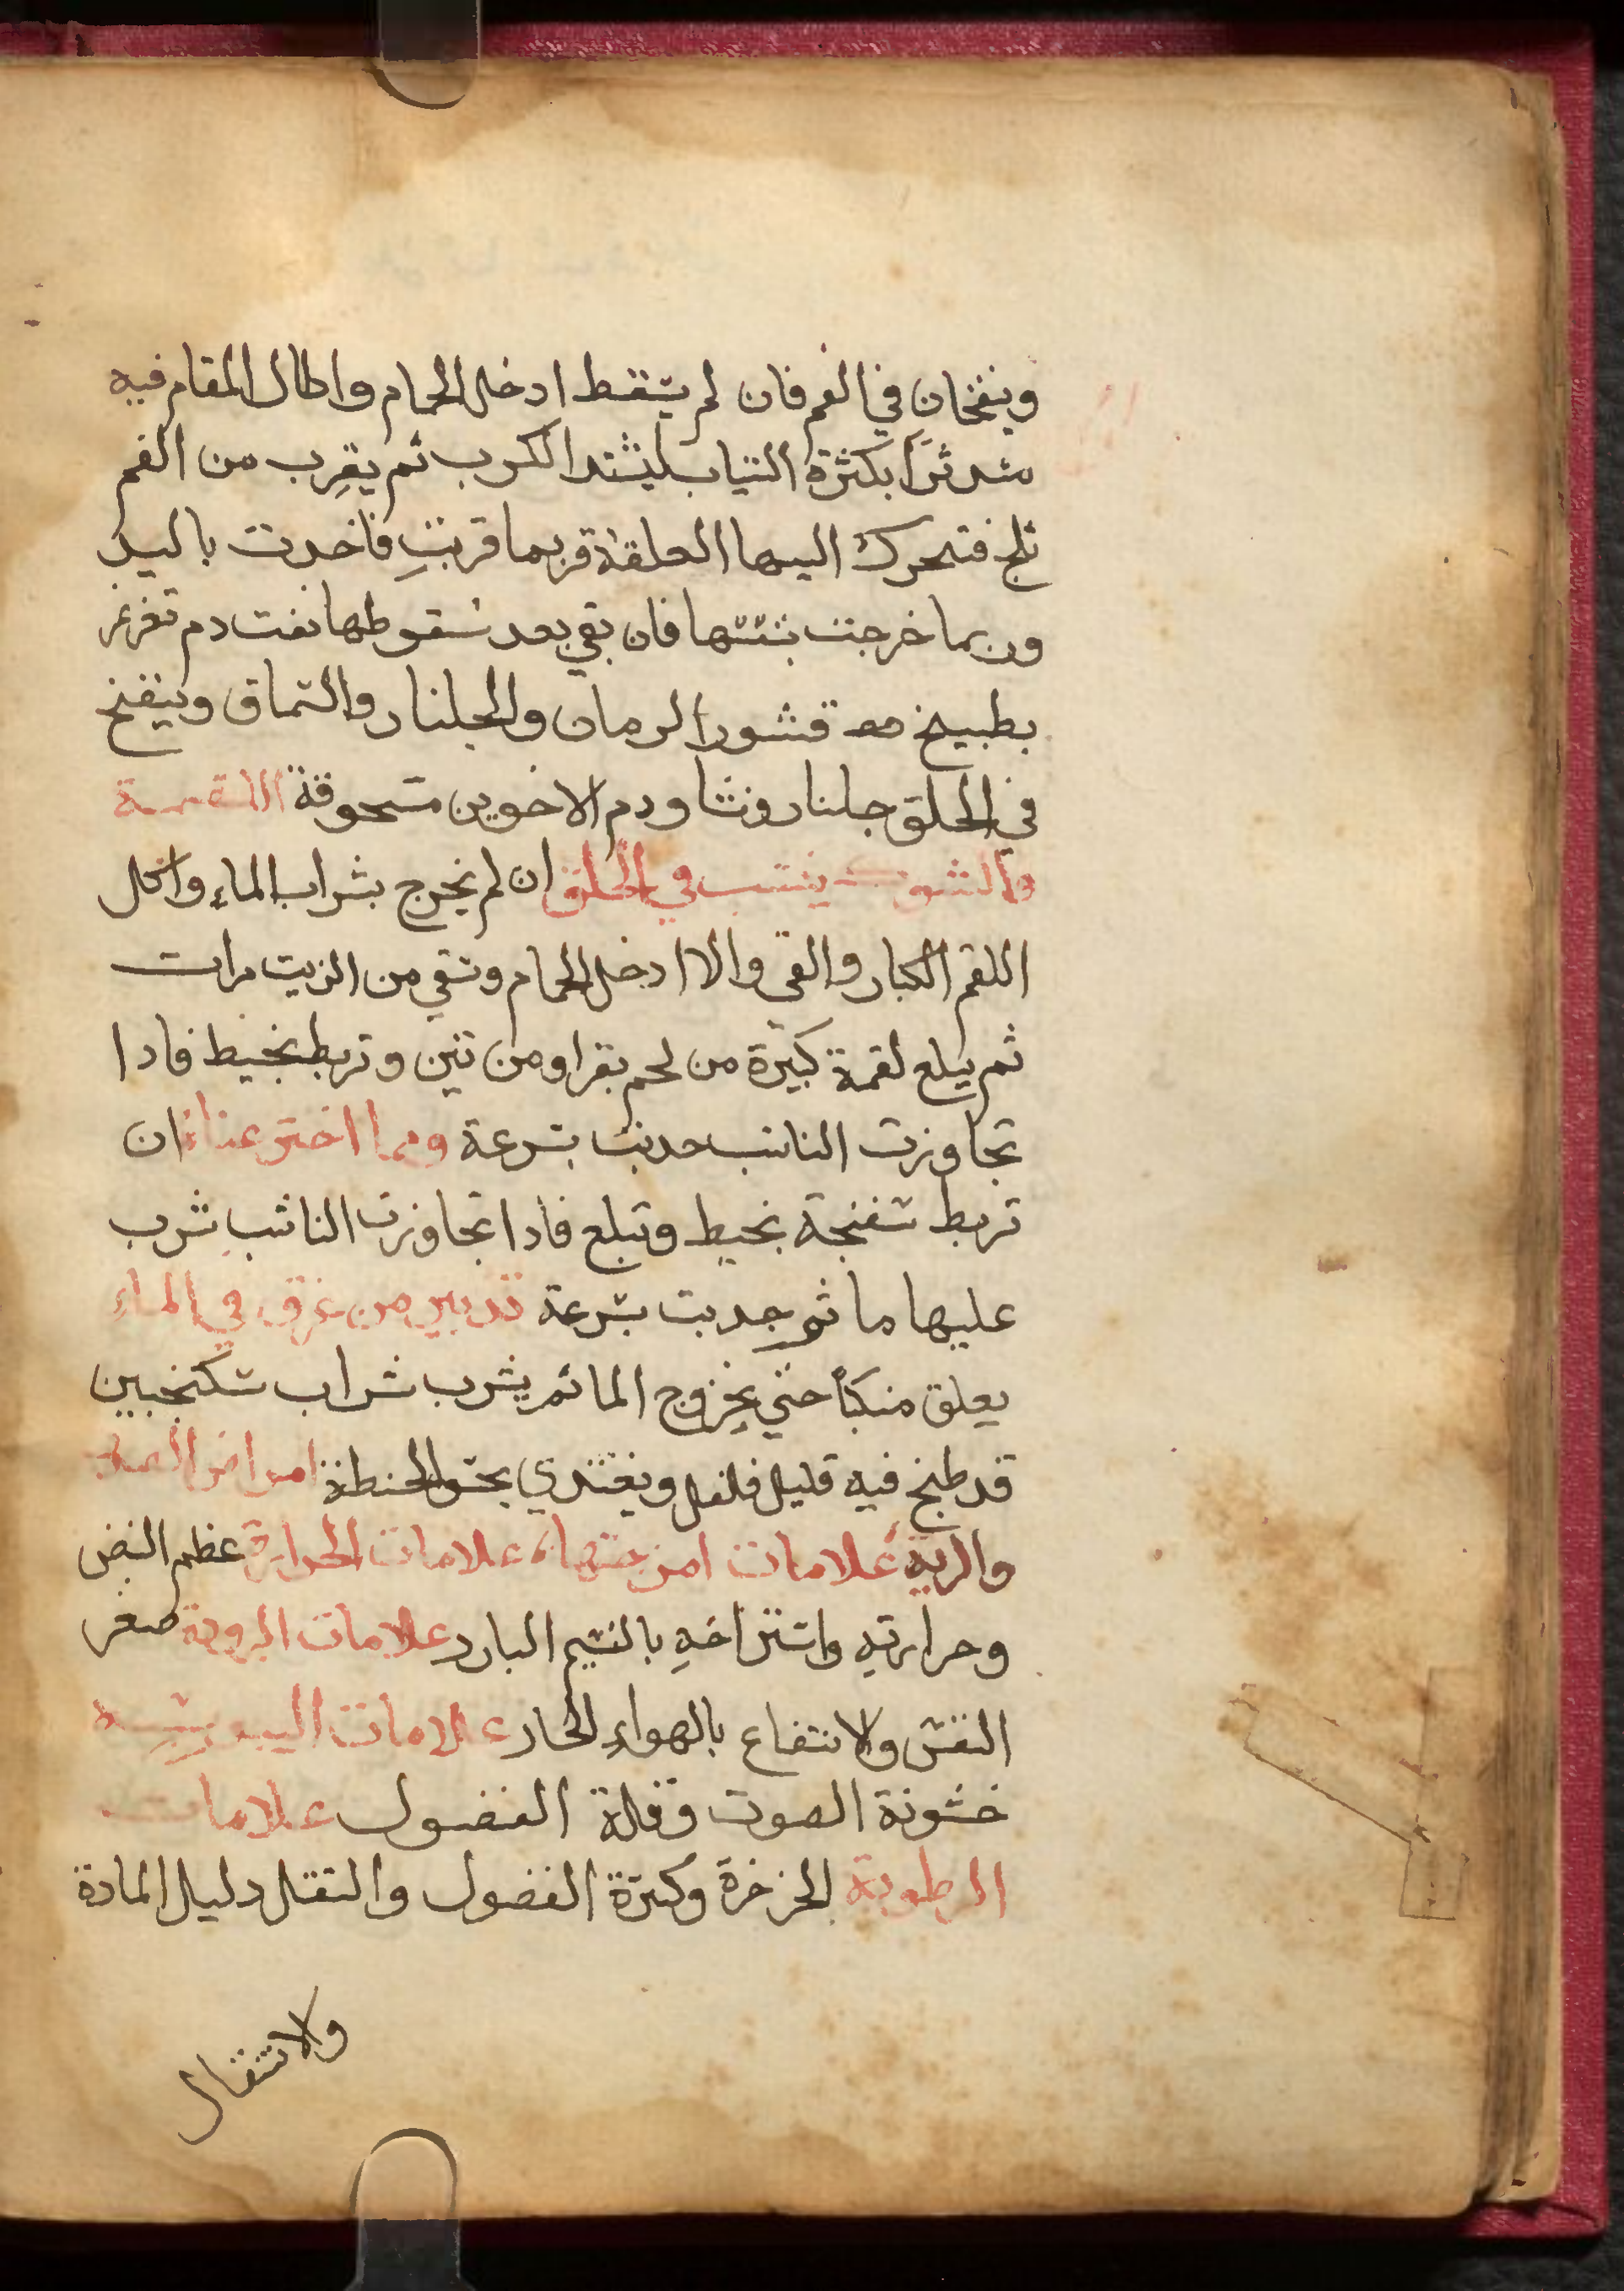 وينفخان في الفم فان لم يسقط ادخل الحمام واطال المقام فيه
متدثراً بكثرة الثياب ليشتد الكرب ثم يقرب من الفم
ثلج فتحرك اليها العلقة فربما قربت فاخدت باليد
وربما خرجت بنتنها فان بقي بعد سقوطها نفت دم تغرغر
بطبيخ قشور الرمان والجلنار والسماق وينفخ
في الحلق جلنار ونشا ودم الاخوين مسحوقة اللقمة
والشوك ينشب في الحلق ان لم يخرج بشراب الماء واكل
اللقم الكبار والقي والا ادخل الحمام وسقي من الزيت مرات
ثم يبلع لقمة كبيرة من لحم بقر او من تين وتربط بخيط فادا
تجاوزت الناشب جدبت بسرعة ومما اخترعناه ان
تربط سفنجة بخيط وتبلع فادا تجاوزت الناشب شرب
عليها ما ثم جدبت بسرعة تدبير من غرق في الماء
يعلق منكباً حتي يخروج الما ثم يشرب شراب سكنجبين
قد طبخ فيه قليل فلفل ويغتدي بحسو الحنطة امراض الصدر
والرية علامات امزجتها علامات الحرارة عظم النبض
وحرارته واستراخه بالنسيم البارد علامات البرودة صغر
النفس والانتفاع بالهواء الحار علامات اليبوسه
خشونة الصوت وقلة الفضول علامات
الرطوبة الخرخرة وكثرة الفضول والثقل دليل المادة
ولانتقال